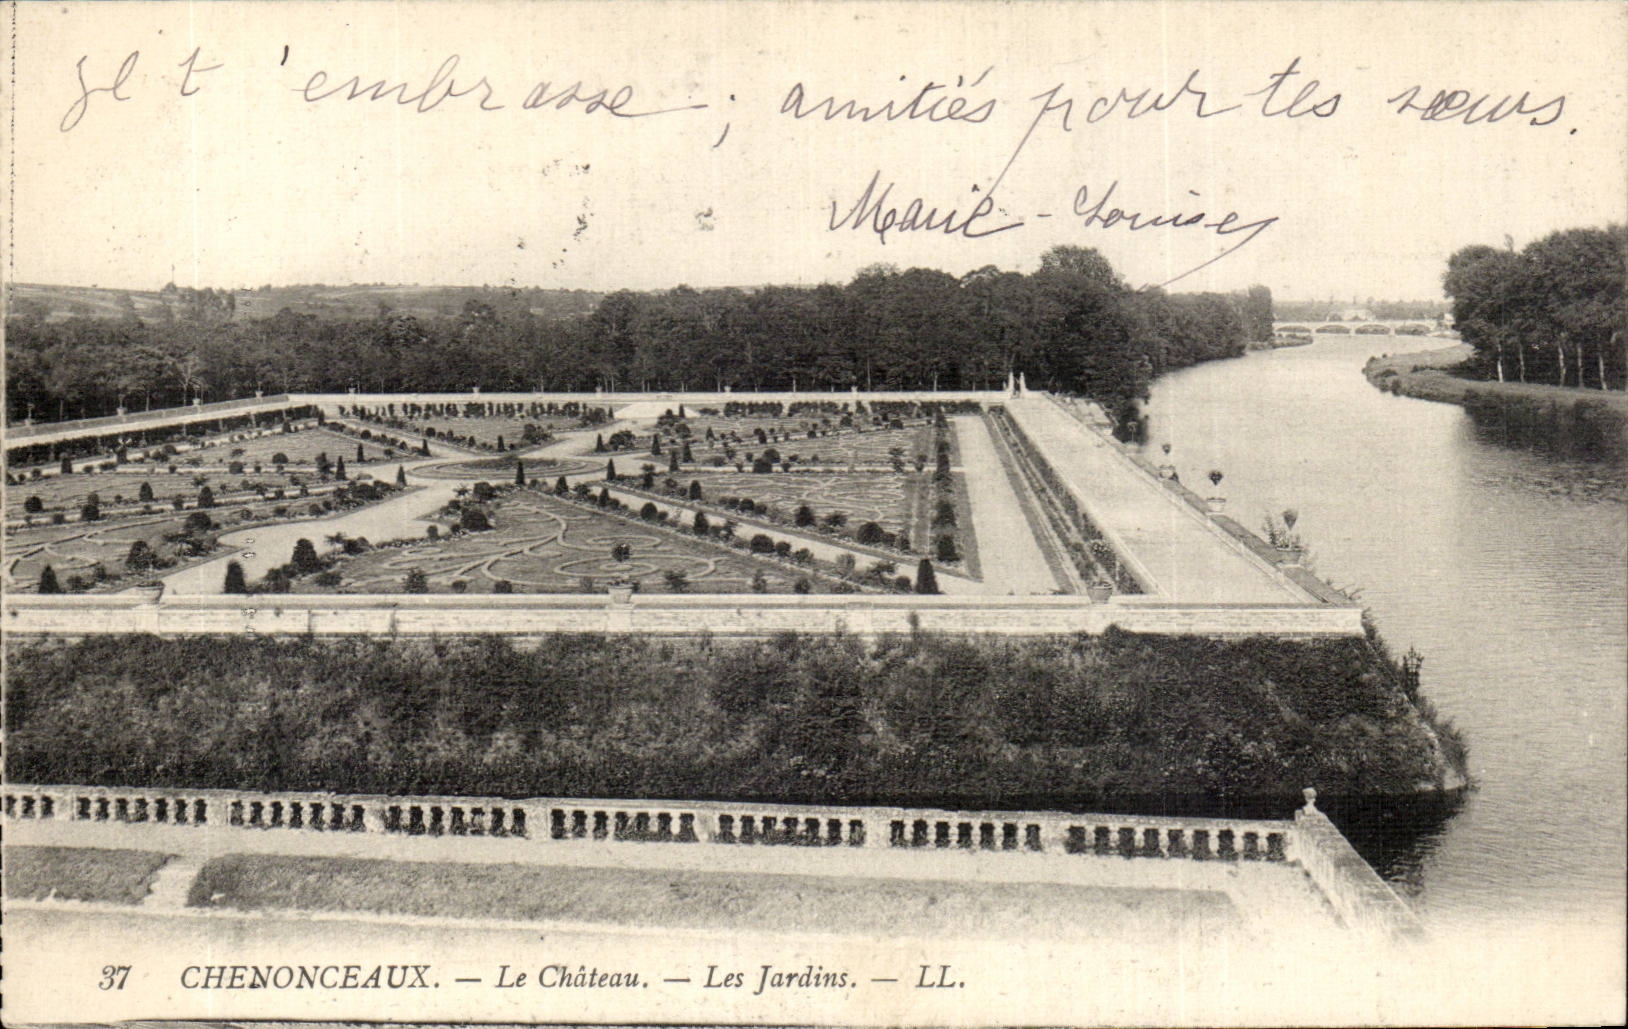 Je t'embrasse ; amitiés pour tes sœurs.
Marie-Louise
37 CHENONCEAUX. — Le Château. — Les Jardins. — LL.